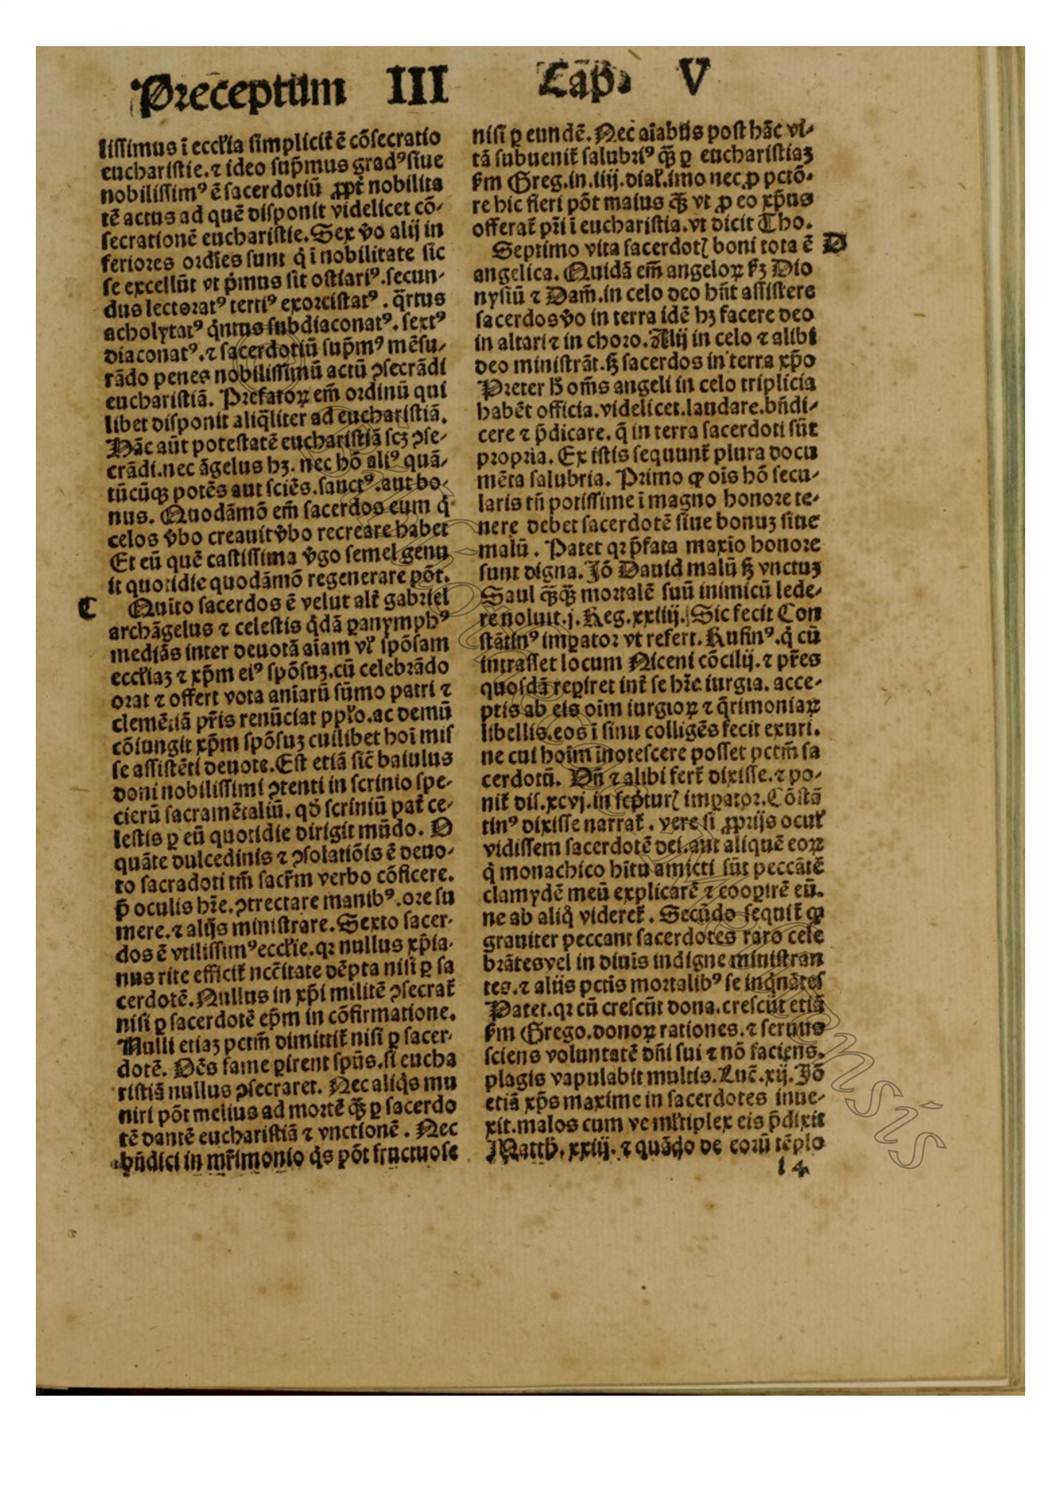 Preceptum III Cap. V
lissimus ī eccl'ia simplicit̄ ē cōsecratio
eucharistie.⁊ ideo sup̄mus gradꝰ siue
nobilissimꝰ ē sacerdotiū ꝓpt̄ nobilita
tē actus ad quē disponit videlicet cō-
secrationē eucharistie. Sex v̊o alij in
feriores ordīes sunt q̇ ī nobilitate sic
se excellūt vt p̄mus sit ostiariꝰ.secun-
dus lectoratꝰ tertiꝰ exorcistatꝰ. q̄rtus
acholytatꝰ q̇ntus subdiaconatꝰ. sextꝰ
diaconatꝰ.⁊ sacerdotiū sup̄mꝰ mēsu-
rādo penes nobilissimū actū ꝯsecrādi
eucharistiā. Prefatoꝝ em̄ ordinū qui
libet disponit aliq̄liter ad eucharistiā.
Hāc aūt potestatē eucharistiā scꝫ ꝯse-
crādi.nec āgelus hꝫ. nec hō aliꝰ quā-
tūcūqꝫ potēs aut sciēs.sanctꝰ.aut bo-
nus. Quodāmō em̄ sacerdos eum q̇
celos v̊bo creauit v̊bo recreare habet
Et eū quē castissima v̊go semel genu
it quotidie quodāmō regenerare pōt.
C Quīto sacerdos ē velut alt̄ gabriel
archāgelus ⁊ celestis q̇dā ꝑanymphꝰ
mediās inter deuotā aīam vl' spōsam
eccl'iaꝫ ⁊ xp̄m eiꝰ spōsuꝫ.cū celebrādo
orat ⁊ offert vota aniarū sūmo patri ⁊
clemētiā pr̄is renūciat pplo.ac demū
cōiungit xp̄m spōsuꝫ cuilibet hoī mis
se assistēti deuote. Est etiā sic̄ baiulus
doni nobilissimi ꝯtenti in scrinio spe-
cierū sacramētaliū. qd̊ scriniū pat̄ ce-
lestis ꝑ eū quotidie dirigit mūdo. O
quāte dulcedinis ⁊ ꝯsolatiōis ē deuo-
to sacradoti tm̄ sacr̄m verbo cōficere.
p̄ oculis hr̄e.ꝯtrectare manibꝰ.ore su
mere.⁊ alijs ministrare. Sexto sacer-
dos ē vtilissimꝰ eccl'ie.qꝛ nullus xp̄ia-
nus rite efficit̄ nec̄itate dēpta nisi ꝑ sa
cerdotē. Nullus in xp̄i militē ꝯsecrat̄
nisi ꝑ sacerdotē ep̄m in cōfirmatione.
Nulli etiaꝫ pctm̄ dimittit̄ nisi ꝑ sacer-
dotē. Oēs fame ꝑirent spūs.si eucha
ristiā nullus ꝯsecraret. Nec aliq̇s mu
niri pōt melius ad mortē q̄ꝫ ꝑ sacerdo
tē dantē eucharistiā ⁊ vnctionē. Nec
bn̄dici in mr̄imonio q̇s pōt fructuose
nisi ꝑ eundē. Nec aīabus post hāc vi-
tā subuenit̄ salubriꝰ q̄ꝫ ꝑ eucharistiaꝫ
s̄m Greg.in.iiij.dial'.imo nec ꝓ pctō-
re hic fieri pōt maius q̄ꝫ vt ꝓ eo xp̄us
offerat̄ pr̄i ī eucharistia.vt dicit Tho.
Septimo vita sacerdotꝭ boni tota ē D
angelica. Quidā em̄ angeloꝝ s̄ꝫ Dio
nysiū ⁊ Dam̄.in celo deo hn̄t assistere
sacerdos v̊o in terra idē hꝫ facere deo
in altari ⁊ in choro. Alij in celo ⁊ alibi
deo ministrāt.sꝫ sacerdos in terra xp̄o
Preter h̄ om̄s angeli in celo triplicia
habēt officia.videlicet.laudare.bn̄di-
cere ⁊ p̄dicare. q̄ in terra sacerdoti sūt
propria. Ex istis sequunt̄ plura docu
mēta salubria. Primo ꝙ oīs hō secu-
laris tn̄ potissime ī magno honore te-
nere debet sacerdotē siue bonuꝫ siue
malū. Patet qꝛ p̄fata maxīo honore
sunt digna. Iō Dauid malū sꝫ vnctuꝫ
Saul q̄ꝫq̄ꝫ mortalē suū inimicū lede-
re noluit.j. Reg.xxiiij. Sic fecit Con
stātinꝰ imꝑator vt refert. Rufinꝰ.q̇ cū
intrasset locum Niceni cōcilij.⁊ pr̄es
quosdā reꝑiret int̄ se hr̄e iurgia. acce-
ptis ab eis oīm iurgioꝝ ⁊ q̄rimoniaꝝ
libellis.eos ī sinu colligēs fecit exuri.
ne cui hoīm īnotescere posset pctm̄ sa
cerdotū. Dn̄ ⁊ alibi fert̄ dixisse.⁊ po-
nit̄ dis.xcvj.in scripturꝭ imꝑator. Cōstā
tinꝰ dixisse narrat̄. vere si ꝓprijs ocul'
vidissem sacerdotē dei.aut aliquē eoꝝ
q̇ monachico hītu amicti sūt peccātē
clamydē meū explicarē ⁊ cooꝑirē eū.
ne ab aliq̇ videret̄. Secūdo sequit̄ ꝙ
grauiter peccant sacerdotes raro cele
brātes vel in diuis indigne ministran
tes.⁊ alijs pctis mortalibꝰ se inq̇nātes
Patet.qꝛ cū crescūt dona.crescūt etiā
s̄m Grego.donoꝝ rationes.⁊ seruus
sciens voluntatē dn̄i sui ⁊ nō faciens.
plagis vapulabit multis. Luc̄.xij. Iō
etiā xp̄s maxime in sacerdotes inue-
xit.malos cum ve mltiplex eis p̄dixit
Matth̄.xxiij.⁊ quādo de eorū tēplo
l 4